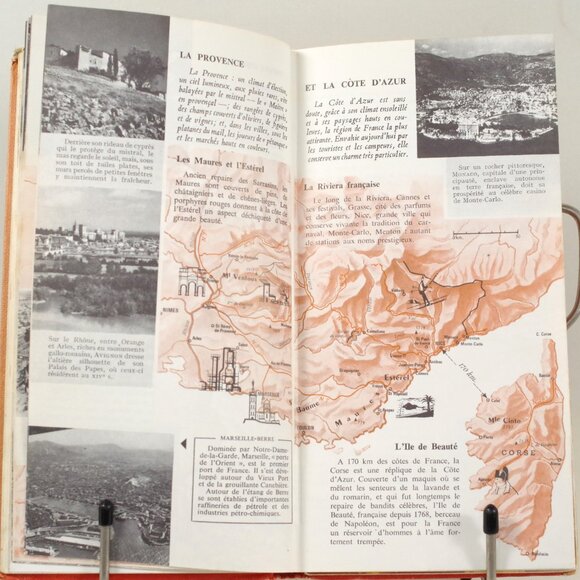 LA PROVENCE
La Provence : un climat d'élection,
un ciel lumineux, aux pluies rares, vite
balayées par le mistral — le « Maître »
en provençal — ; des rangées de cyprès,
des champs couverts d'oliviers, de figuiers
et de vignes; et, dans les villes, sous les
platanes du mail, les joueurs de « pétanque »
et les marchés hauts en couleurs.
Derrière son rideau de cyprès
qui le protège du mistral, le
mas regarde le soleil, mais, sous
son toit de tuiles plates, ses
murs percés de petites fenêtres
y maintiennent la fraîcheur.
Les Maures et l'Estérel
Ancien repaire des Sarrasins, les
Maures sont couverts de pins, de
châtaigniers et de chênes-lièges. Les
porphyres rouges donnent à la côte de
l'Estérel un aspect déchiqueté d'une
grande beauté.
Sur le Rhône, entre Orange
et Arles, riches en monuments
gallo-romains, AVIGNON dresse
l'altière silhouette de son
Palais des Papes, où ceux-ci
résidèrent au XIVe s.
MARSEILLE-BERRE
Dominée par Notre-Dame-
de-la-Garde, Marseille, « porte
de l'Orient », est le premier
port de France. Il s'est déve-
loppé autour du Vieux Port
et la grouillante Canebière.
Autour de l'étang de Berre
se sont établies d'importantes
raffineries de pétrole et des
industries pétro-chimiques.
ET LA CÔTE D'AZUR
La Côte d'Azur est sans
doute, grâce à son climat ensoleillé
et à ses paysages hauts en cou-
leurs, la région de France la plus
attirante. Envahie aujourd'hui par
les touristes et les campeurs, elle
conserve un charme très particulier.
Sur un rocher pittoresque,
MONACO, capitale d'une prin-
cipauté, enclave autonome
en terre française, doit sa
prospérité au célèbre casino
de Monte-Carlo.
La Riviera française
Le long de la Riviera, Cannes et
ses festivals, Grasse, cité des parfums
et des fleurs, Nice, grande ville qui
conserve vivante la tradition du car-
naval, Monte-Carlo, Menton : autant
de stations aux noms prestigieux.
Mt Ventoux
NIMES
MARSEILLE
TOULON
Baume
Maures
Estérel
NICE
Menton
MONACO
170 km.
C. Corse
Bastia
Calvi
Mte Cinto
CORSE
L'Ile de Beauté
A 170 km des côtes de France, la
Corse est une réplique de la Côte
d'Azur. Couverte d'un maquis où se
mêlent les senteurs de la lavande et
du romarin, et qui fut longtemps le
repaire de bandits célèbres, l'Ile de
Beauté, française depuis 1768, berceau
de Napoléon, est pour la France
un réservoir d'hommes à l'âme for-
tement trempée.